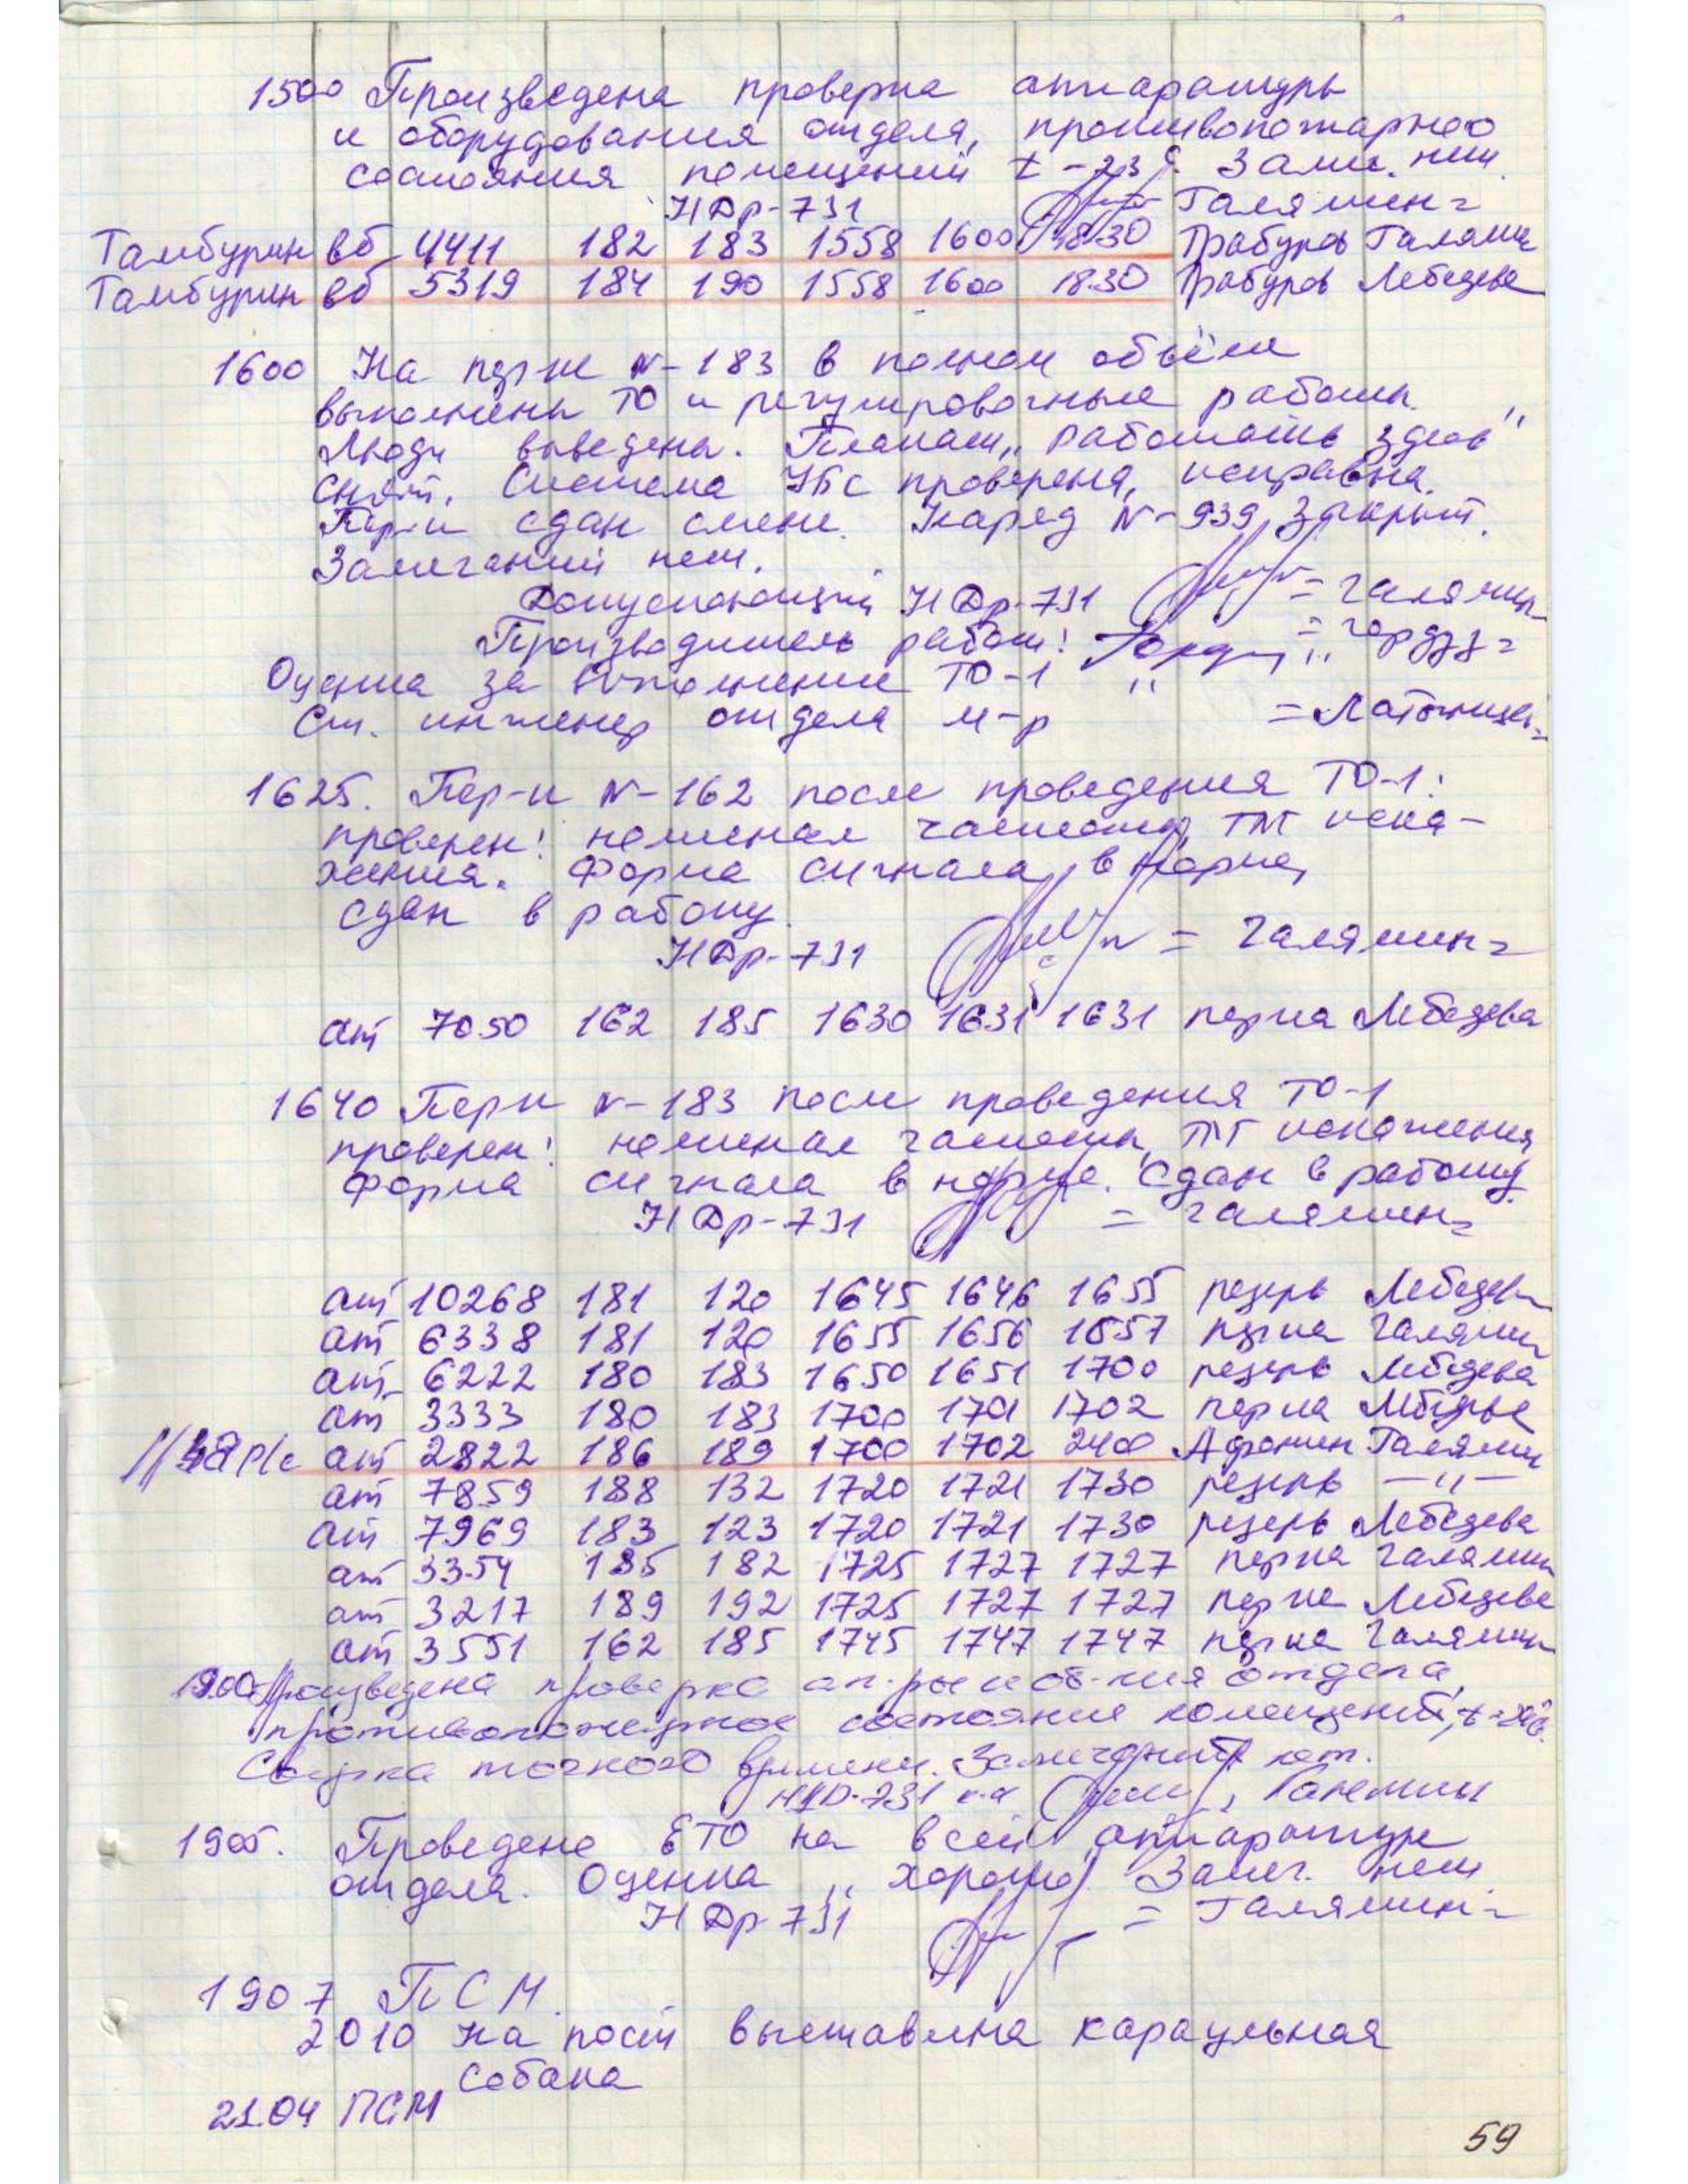 1500 Произведена проверка аппаратуры
и оборудования отдела, противопожарное
состояния помещений t-23°. Замеч. нет.
НДр-731 Галямин=
Тамбурин вб 4411 182 183 1558 1600 18.30 Трабуров Галямин
Тамбурин вб 5319 184 190 1558 1600 18.30 Трабуров Лебедева
1600 На пер-ке N-183 в полном объёме
выполнены ТО и регулировочные работы.
Люди выведены. Плакат „работать здесь"
снят. Система УБС проверена, исправна.
Пер-к сдан смене. Наряд N-939 закрыт.
Замечаний нет.
Допускающий НДр-731 =Галямин=
Производитель работ:
Оценка за выполнение ТО-1 "
Ст. инженер отдела м-р
1625. Пер-к N-162 после проведения ТО-1:
проверен: номинал частоты, ТЛГ иска-
жения. Форма сигнала в норме,
сдан в работу.
НДр-731 = Галямин=
ат 7050 162 185 1630 1631 1631 пер-ка Лебедева
1640 Пер-к N-183 после проведения ТО-1
проверен: номинал частоты, ТЛГ искажения,
форма сигнала в норме. Сдан в работу.
НДр-731 = Галямин=
ат 10268 181 120 1645 1646 1655 резерв Лебедева
ат 6338 181 120 1655 1656 1657 пер-ка Галямин
ат 6222 180 183 1650 1651 1700 резерв Лебедева
ат 3333 180 183 1700 1701 1702 пер-ка Лебедева
р/с ат 2822 186 189 1700 1702 2400 Афонин Галямин
ат 7859 188 132 1720 1721 1730 резерв —"—
ат 7969 183 123 1720 1721 1730 резерв Лебедева
ат 3354 185 182 1725 1727 1727 пер-ка Галямин
ат 3217 189 192 1725 1727 1727 пер-ка Лебедева
ат 3551 162 185 1745 1747 1747 пер-ка Галямин
1900 Произведена проверка ап-ры и об-ния отдела,
противопожарное состояние помещений,
Сверка точного времени. Замечаний нет.
НДр-731 к-н Галямин
1905. Проведено ЕТО на всей аппаратуре
отдела. Оценка „хорошо" Замеч. нет.
НДр-731 = Галямин=
1907 ПСМ.
2010 На пост выставлена караульная
собака
21.04 ПСМ
59